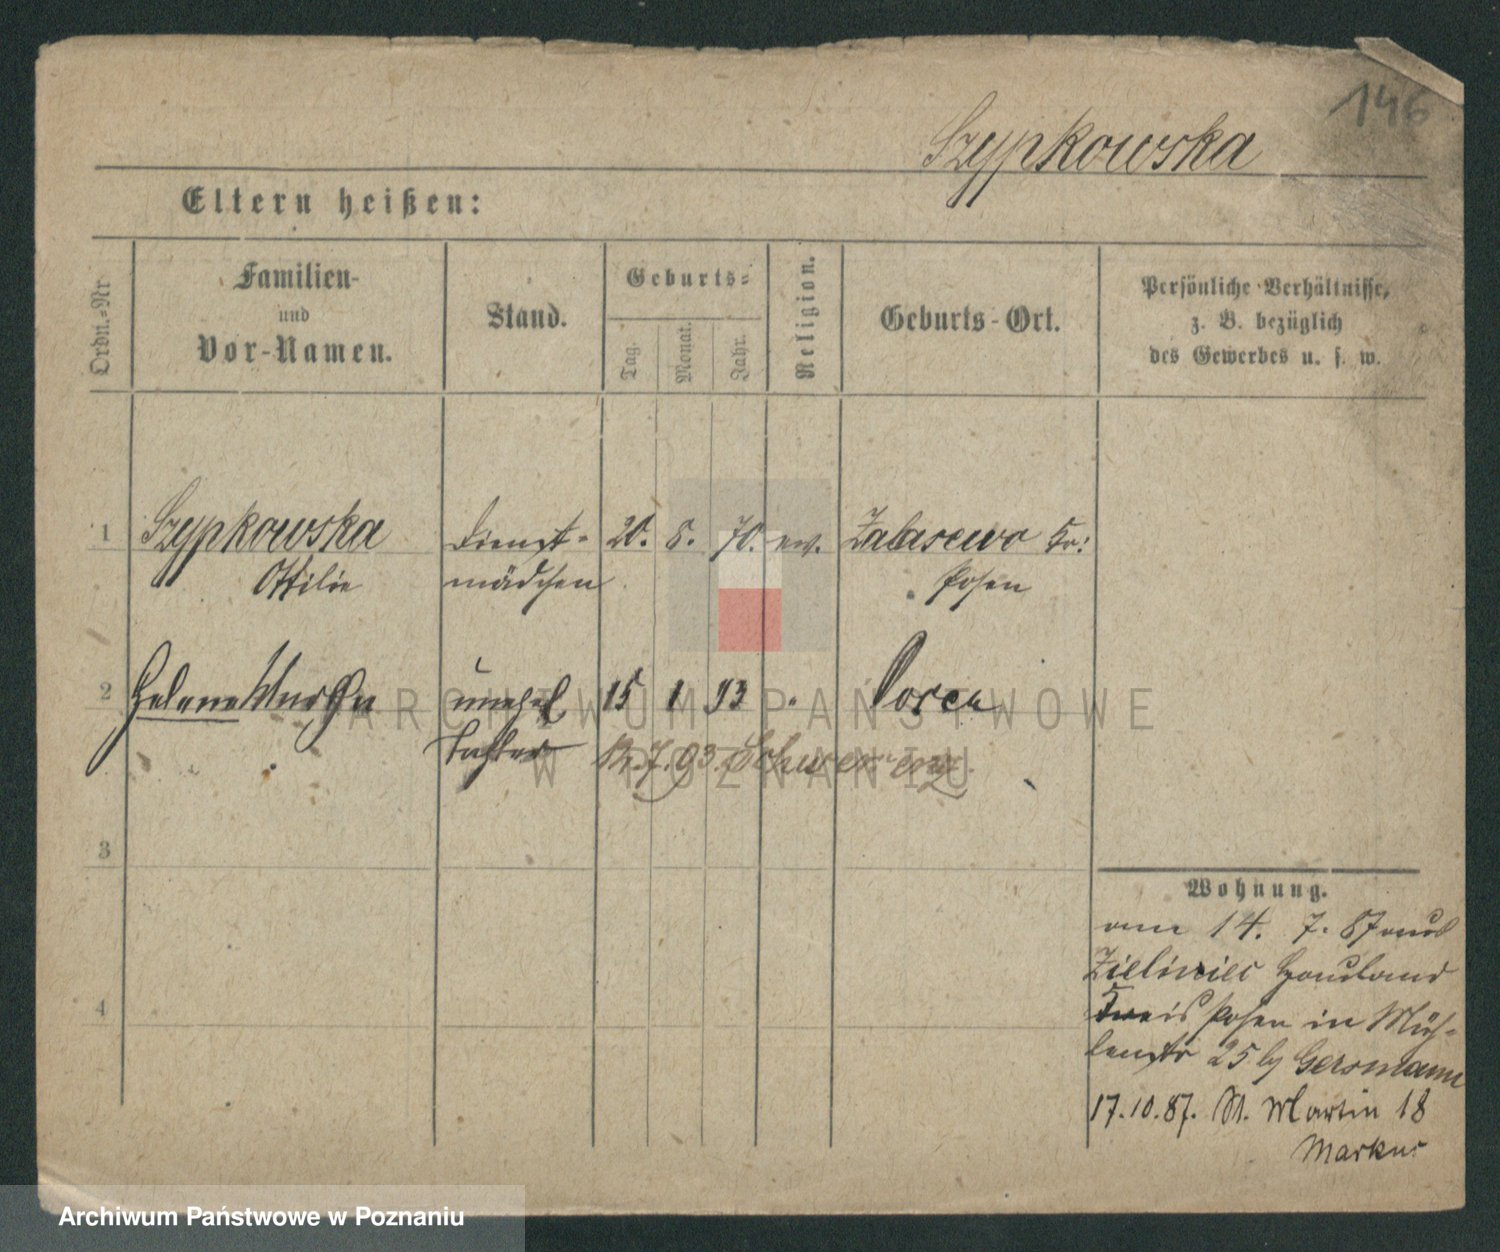 146
Szypkowska
Eltern heißen:
Ordn.-Nr
Familien-
und
Vor-Namen.
Stand.
Geburts-
Tag.
Monat.
Jahr.
Religion.
Geburts-Ort.
Persönliche Verhältnisse,
z. B. bezüglich
des Gewerbes u. s. w.
1 Szypkowska Dienst- 20. 8. 70. ev. Zalasewo Kr:
Ottilie mädchen Posen
2 Helene Martha unehel 15 1 93 " Posen
Tochter 12.7.93. Schwersenz.
3
4
Wohnung.
am 14. 7. 87 aus
Zieliniec Hauland
Kreis Posen in Müh-
lenstr 25 b/ Gersmann
17.10.87. St. Martin 18
Markus
ARCHIWUM PAŃSTWOWE
W POZNANIU
Archiwum Państwowe w Poznaniu